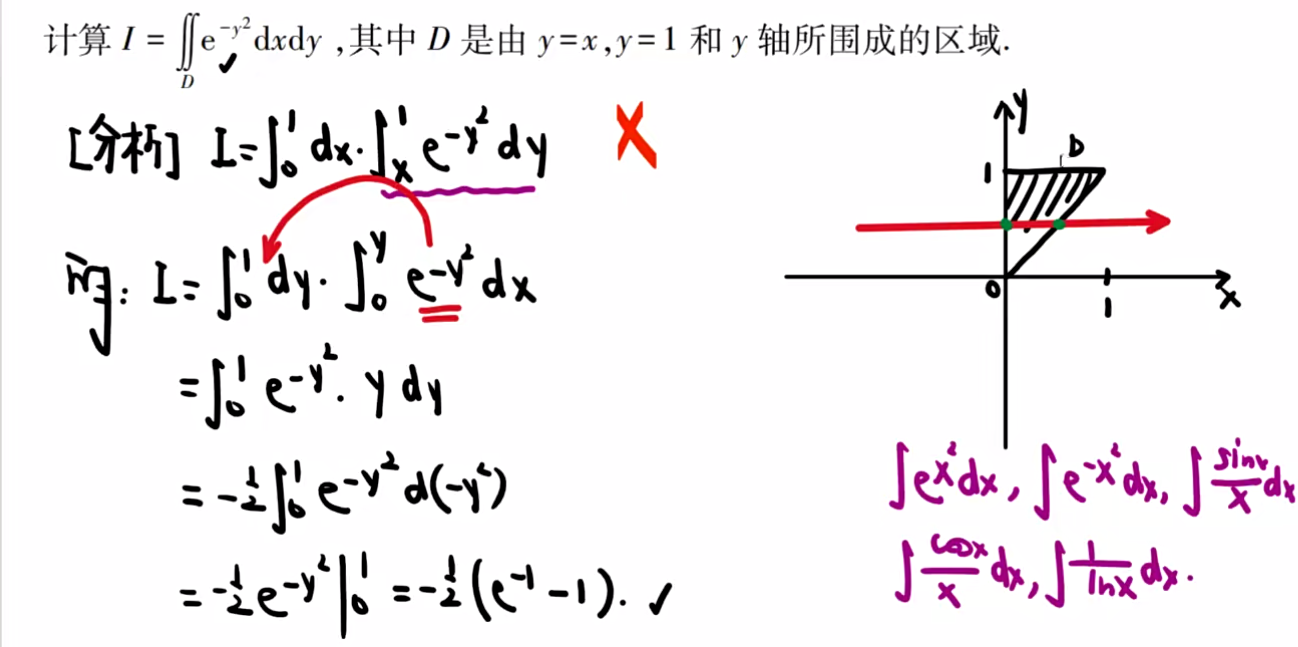 计算 I = ∬_D e^{-y²}dxdy ,其中 D 是由 y=x,y=1 和 y 轴所围成的区域.
[分析] I=∫₀¹ dx·∫ₓ¹ e^{-y²} dy ✗
解: I= ∫₀¹ dy· ∫₀^y e^{-y²} dx
=∫₀¹ e^{-y²}· y dy
= -½∫₀¹ e^{-y²} d(-y²)
= -½e^{-y²}|₀¹ = -½(e^{-1} -1). ✓
y
D
1
0
1
x
∫e^{x²}dx, ∫e^{-x²}dx, ∫ sinx/x dx
∫ cosx/x dx, ∫ 1/lnx dx.